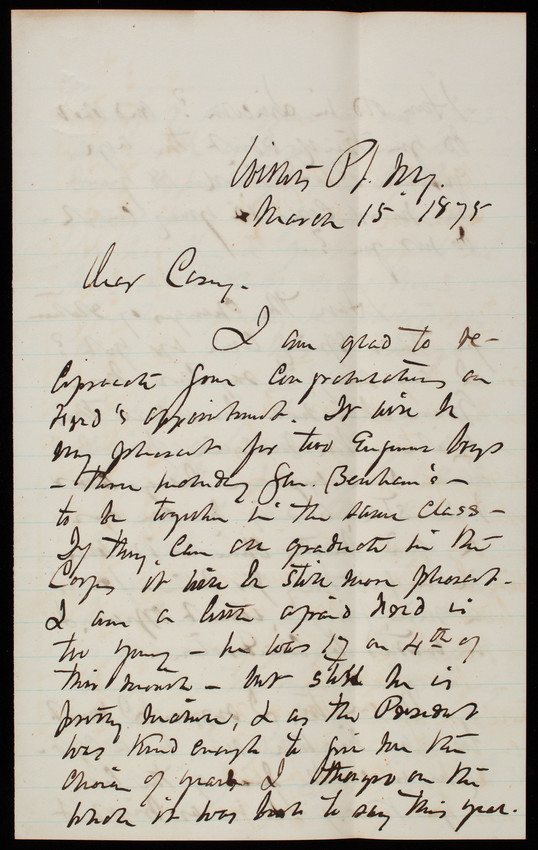 Willets Pt. N.Y.
March 15 1875
Dear Casey.
I am glad to re-
ciprocate your congratulations on
Fred's appointment. It will be
very pleasant for two Engineer boys
- three including Gen. Benham's -
to be together in the same class -
If they can all graduate in the
Corps it will be still more pleasant.
I am a little afraid Fred is
too young - he was 17 on 4th of
this month - but still he is
pretty mature, & as the President
was kind enough to give me the
choice of years I thought on the
whole it was best to say this year.